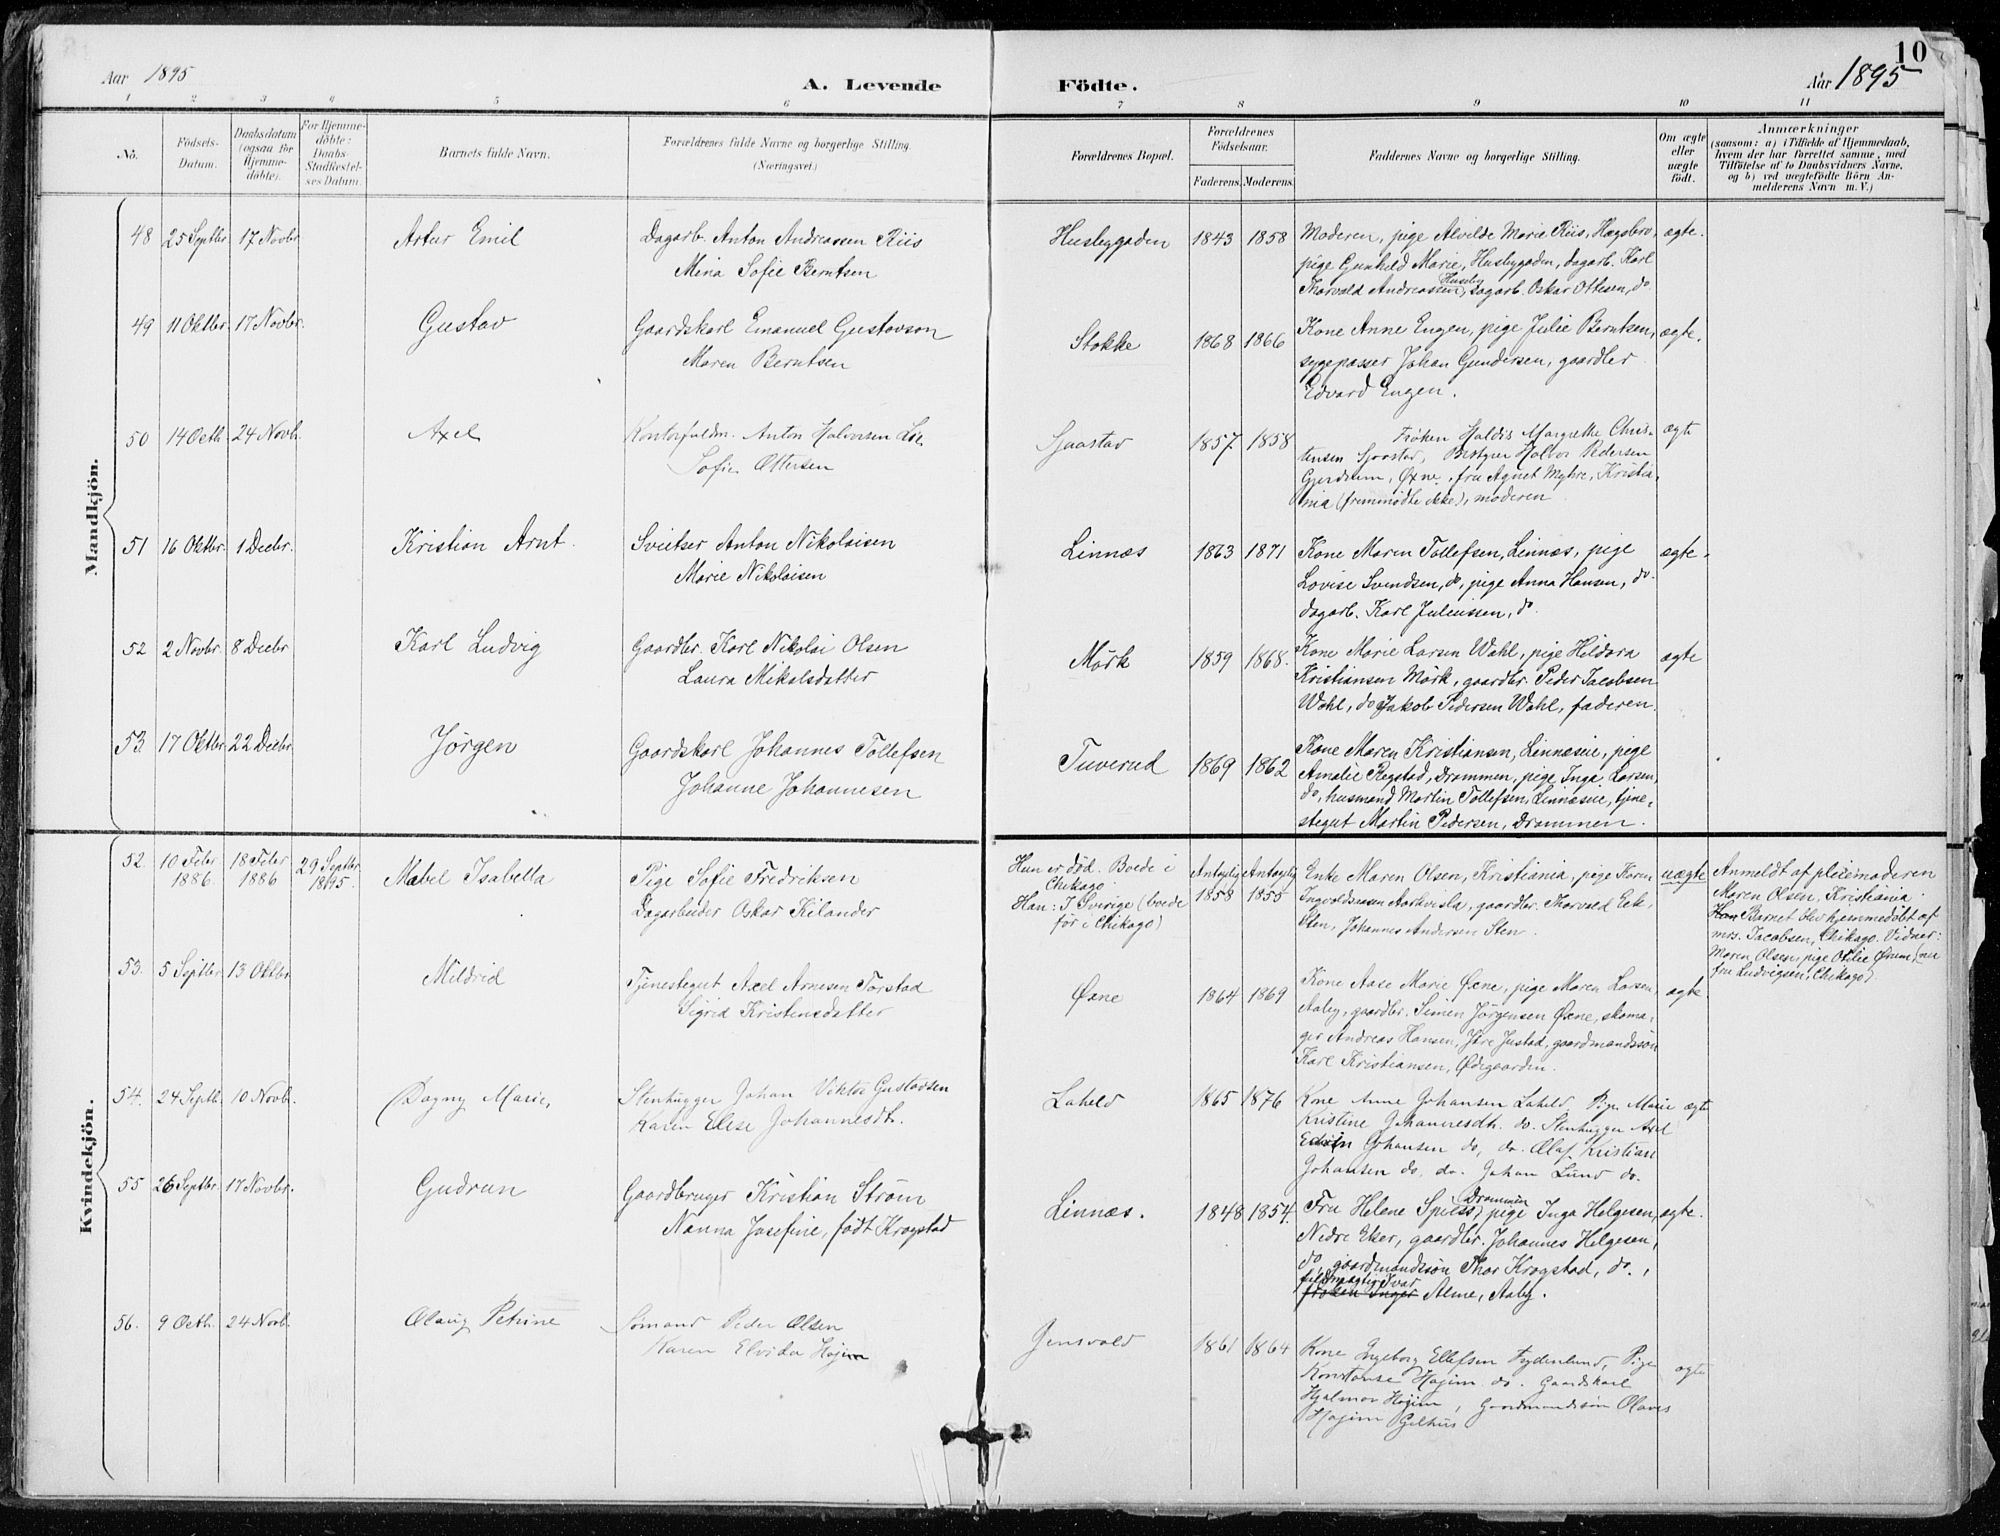 10
Aar 1895
A. Levende Födte.
Aar 1895
1 2 3 4 5 6 7 8 9 10 11
No.
Födsels-
Datum.
Daabsdatum
(ogsaa for
Hjemme-
döbte).
For Hjemme-
döbte:
Daabs-
Stadfæstel-
ses Datum.
Barnets fulde Navn.
Forældrenes fulde Navne og borgerlige Stilling.
(Næringsvei.)
Forældrenes Bopæl.
Forældrenes
Födselsaar.
Faderens. Moderens.
Faddernes Navne og borgerlige Stilling.
Om ægte
eller
uægte
födt.
Anmærkninger
(saasom: a) i Tilfælde af Hjemmedaab,
hvem der har forrettet samme, med
Tilföielse af to Daabsvidners Navne,
og b) ved uægtefödte Börn An-
melderens Navn m. V.)
Mandkjön.
48 25 Septbr 17 Novbr
Artur Emil
Dagarb. Anton Andreassen Riis
Mina Sofie Berntsen
Husebygaden
1843 1858
Moderen, pige Alvilde Marie Riis, Hægsbro,
pige Gunhild Marie, Husbygaden, dagarb. Karl
Thorvald Andreassen, Huseby, dagarb. Oskar Ottesen, do
ægte.
49 11 Oktbr. 17 Novbr.
Gustav
Gaardskarl Emanuel Gustavson
Maren Berntsen
Stokke
1868 1866
Kone Anne Engen, pige Julie Berntsen,
sygepasser Johan Gundersen, gaardbr
Edvard Engen.
ægte.
50 14 Octb. 24 Novb.
Axel
Kontorfuldm. Anton Halvorsen Lie
Sofie Ottersen
Sjaastad
1857 1858
Frøken Haldis Margrethe Chris-
tensen Sjaastad, Bestyrer Halvor Pedersen
Gjerdrum, Øxne, fru Agnet Myhre, Kristia-
nia (fremmødte ikke), moderen
ægte
51 16 Oktbr. 1 Decbr.
Kristian Arnt.
Svietser Anton Nikolaisen
Marie Nikolaisen
Linnæs
1863 1871
Kone Maren Tollefsen, Linnæs, pige
Lovise Svendsen, do, pige Anna Hansen, do.
dagarb. Karl Juliussen, do.
ægte.
52 2 Novbr. 8 Decbr
Karl Ludvig
Gaardbr. Karl Nikolai Olsen
Laura Mikalsdatter
Mørk
1859 1868.
Kone Marie Larsen Wahl, pige Hildora
Kristiansen Mørk, gaardbr. Peder Jacobsen
Wahl, do Jakob Pedersen Wahl, faderen.
ægte
53. 17 Oktbr. 22 Decbr.
Jørgen
Gaardskarl Johannes Tollefsen
Johanne Johannesen
Tuverud
1869 1862
Kone Maren Kristiansen, Linnæseie, pige
Amalie Rogstad, Drammen, pige Inga Larsen,
do, husmand Martin Tollefsen, Linnæseie, tjene-
stegut Martin Pedersen, Drammen.
Kvindekjön.
52. 10 Febr 1886. 18 Febr 1886 29 Septbr 1895
Mabel Isabella
Pige Sofie Fredriksen
Dagarbeider Oskar Kilander
Hun er død. Boede i
Chikago
Han: I Sverige (boede
før i Chikago)
Antagelig 1858 Antagelig 1855
Enke Maren Olsen, Kristiania, pige Karen
Ingvoldsen Aarkvisla, gaardbr. Thorvald Eek,
Sten, Johannes Andersen Sten.
uægte
Anmeldt af pleiemoderen
Maren Olsen, Kristiania
Barnet blev hjemmedøbt af
mrs. Jacobsen, Chikago. Vidner:
Maren Olsen, pige Otilie Ørum, (nu
fru Ludvigsen, Chikago)
53. 5 Septbr. 13 Oktbr
Mildrid
Tjenestegut Axel Arnesen Torstad
Sigrid Kristensdatter
Øxne
1864 1869
Kone Aase Marie Øxne, pige Maren Larsen,
Aaby, gaardbr. Simen Jørgensen Øxne, skoma-
ger Andreas Hansen, Jære Justad, gaardmandssøn
Karl Kristiansen, Ødegaarden.
ægte.
54. 24 Septb. 10 Novb.
Dagny Marie,
Stenhugger Johan Viktor Gustavsen
Karen Elise Johannesdt.
Laheld
1865 1876
Kone Anne Johansen Laheld, Pige Marie
Kristine Johannesdt. do. Stenhugger Axel
Edvin Johansen do, do. Olaf Kristian
Johansen do, do. Johan Lund do.
ægte
55 26 Septbr. 17 Novbr.
Gudrun
Gaardbruger Kristian Strøm
Nanna Josefine, født Krogstad
Linnæs.
1848 1854.
Fru Helene Spiess, Drammen, pige Inga Helgesen,
Nedre Eker, gaardbr. Johannes Helgesen,
do, gaardmandssøn Thor Krogstad, do.,
fuldmægtig Ivar
frøken Inger Alme, Aaby.
ægte.
56. 9 Octb. 24 Novb.
Olaug Petrine
Sømand Peder Olsen
Karen Elvida Hajem
Jensvold
1861 1864
Kone Ingeborg Ellefsen Frydenlund, Pige
Konstanse Hajem do. Gaardskarl
Hjalmar Hajem, Gaardmandssøn Olaves
Hajem Gilhus
ægte